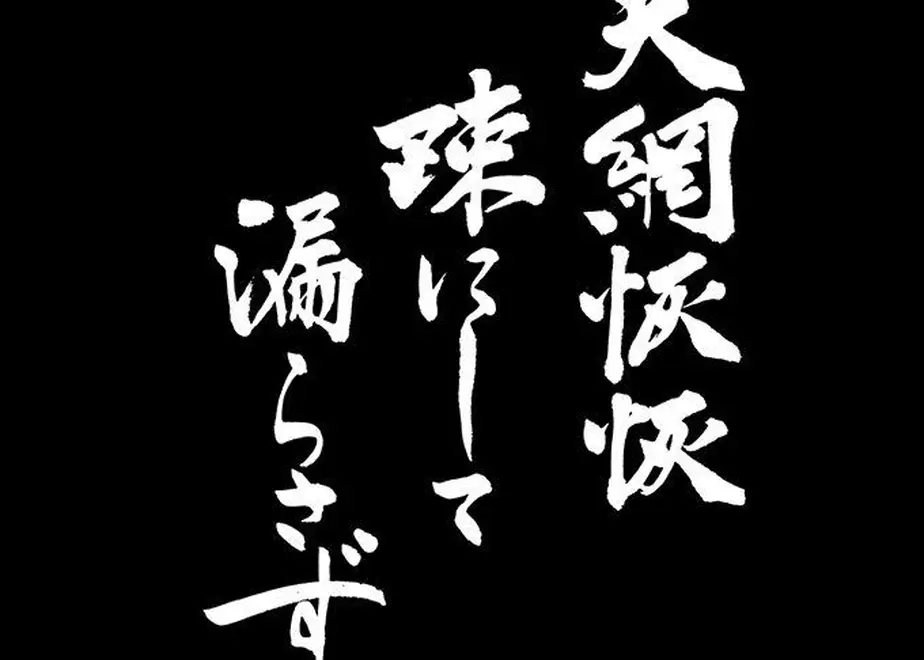 天網恢恢
疎にして
漏らさず